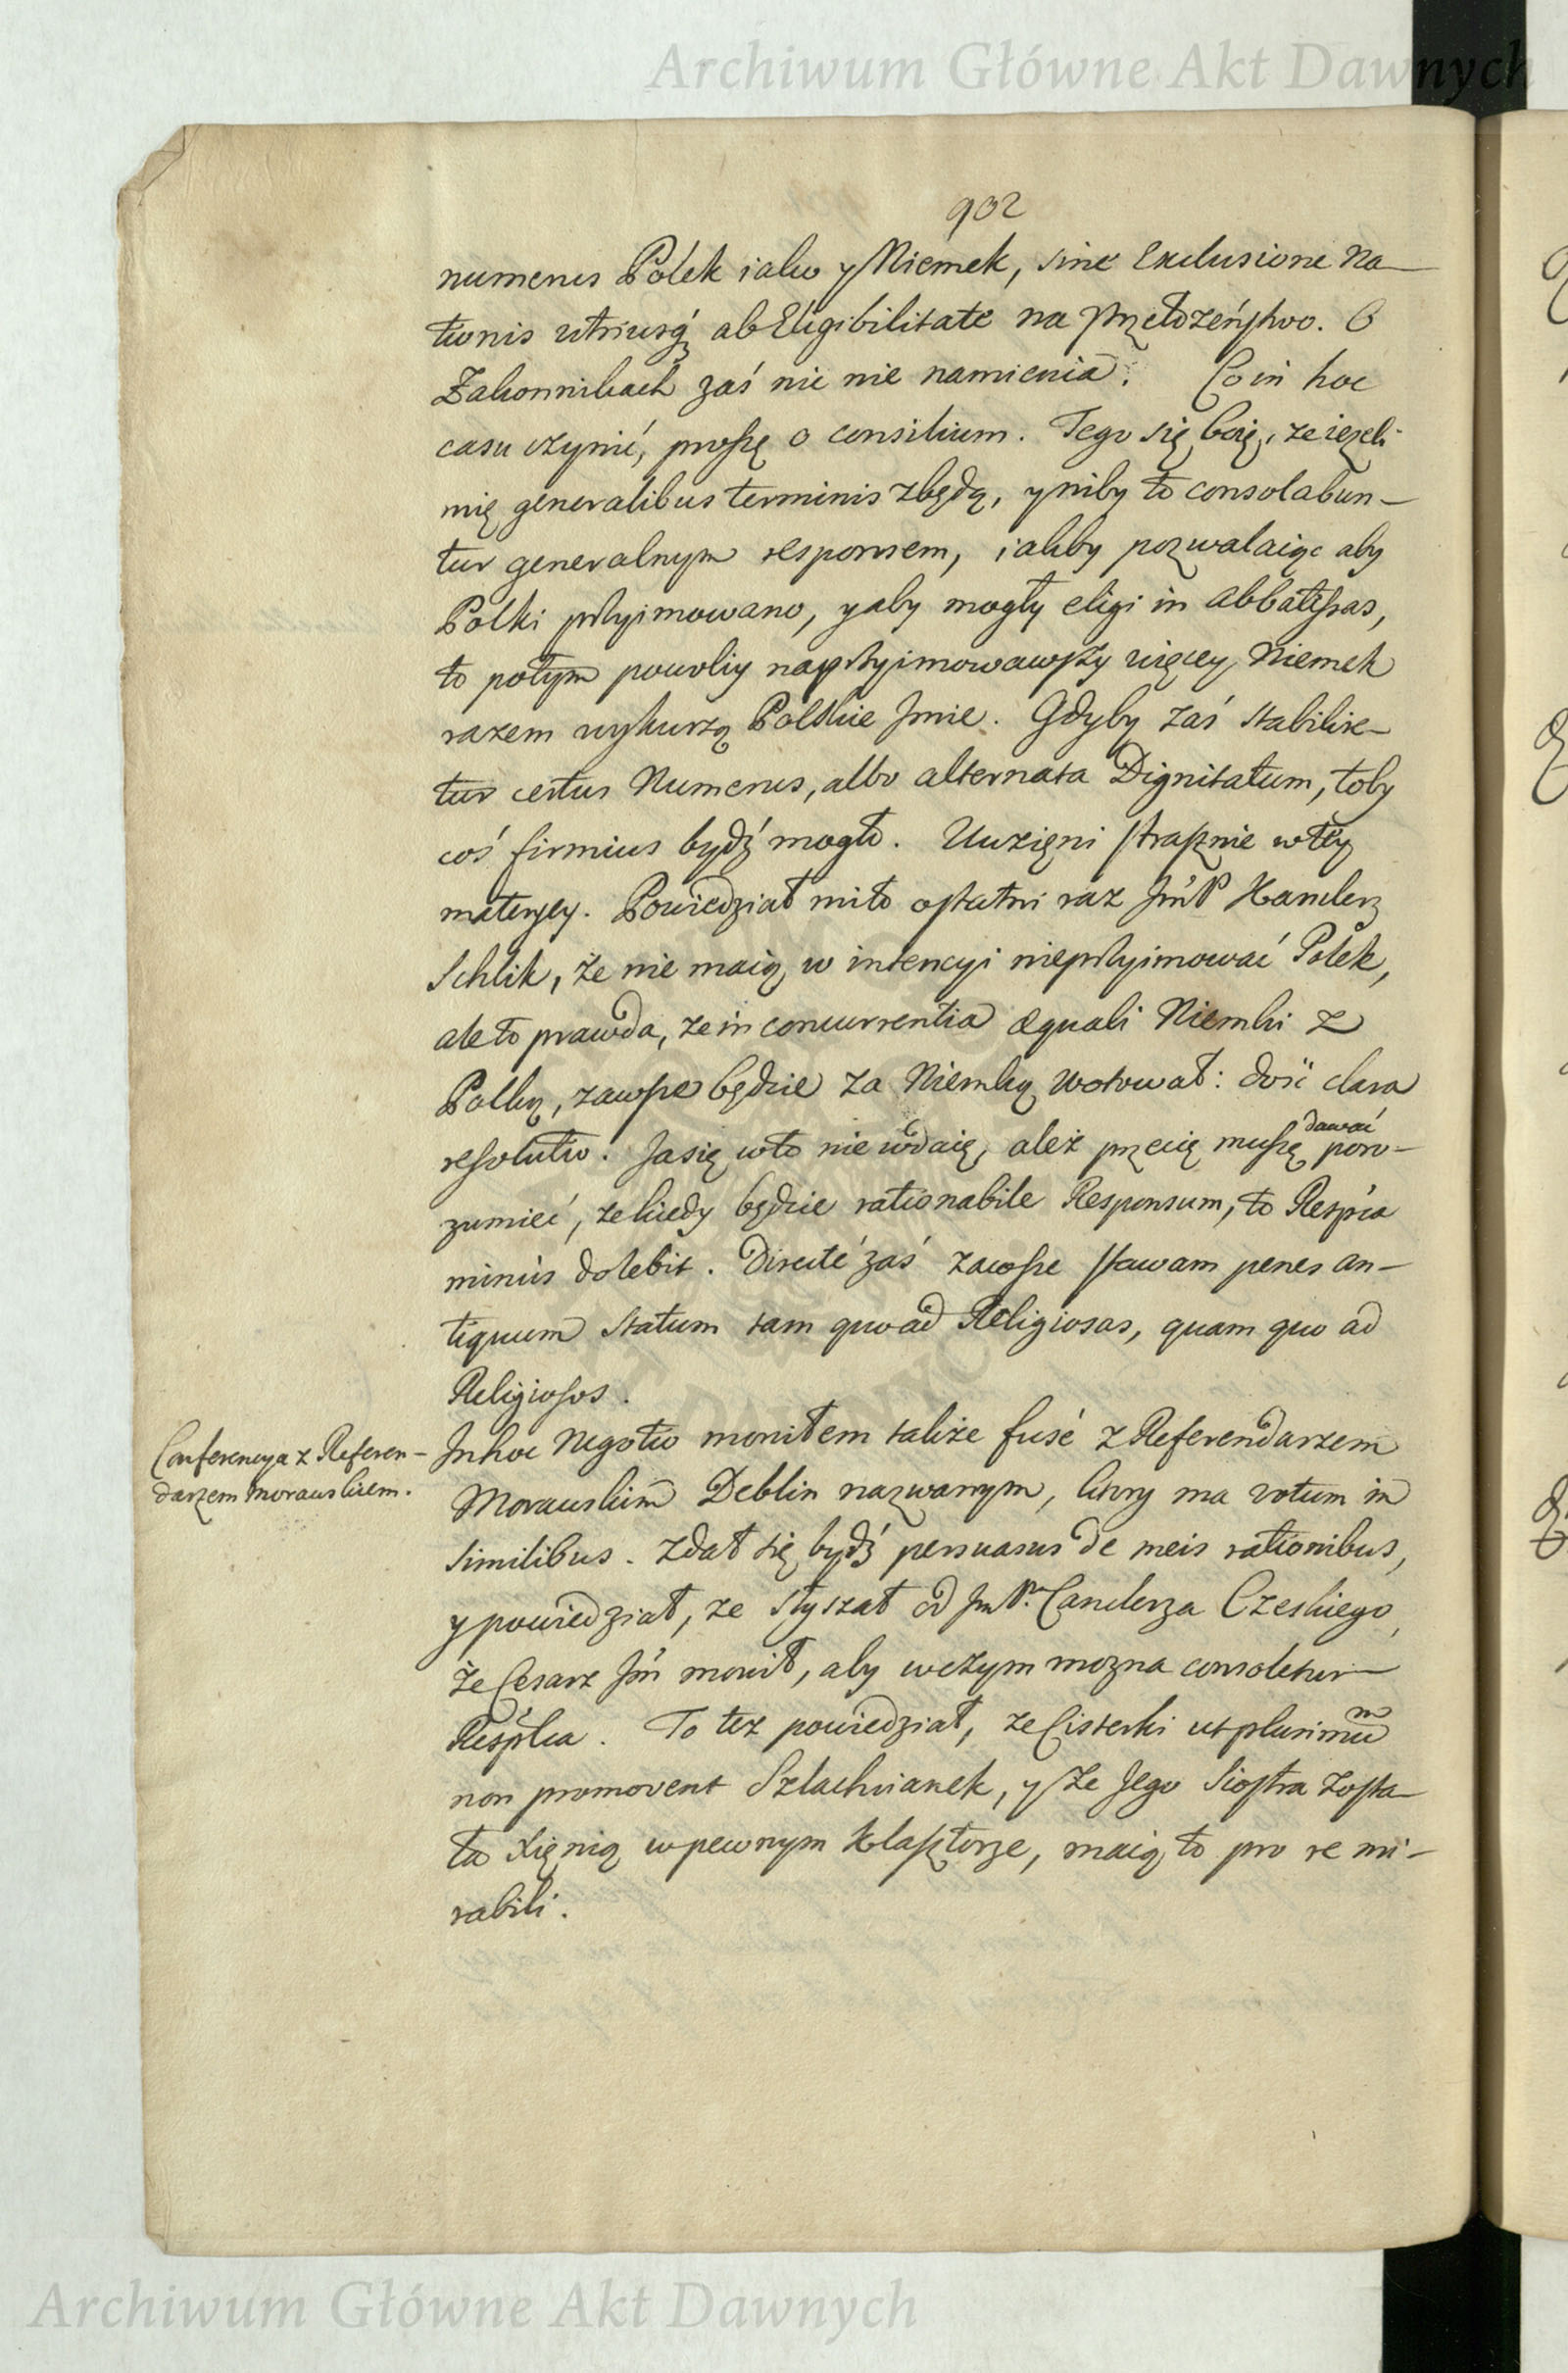 Archiwum Główne Akt Dawnych
902
numerus Polek iako y Niemek, sine Exclusione Na-
tionis utriusq́ ab Eligibilitate na Przełożeństwo. O
Zakonnikach zaś nic nie namienia. Co in hoc
casu czynić, proszę o consilium. Tego się boię, że ieżeli
mię generalibus terminis zbędą, y niby to consolabun-
tur generalnym responsem, iakby pozwalaiąc aby
Polki przyimowano, y aby mogły eligi in abbatissas,
to potym powoliy naprzyimowawszy więcey Niemek
razem wykurzą Polskie Imie. Gdyby zaś stabilire-
tur certus Numerus, albo alternata Dignitatum, toby
coś firmius bydź mogło. Uwzięni strasznie w tey
materyey. Powiedział mi to ostatni raz JmP Kanclerz
Schlik, że nie maią w intencyi nieprzyimować Polek,
ale to prawda, że in concurrentia æquali Niemki z
Polką, zawsze będzie za Niemką wotował: dość clara
resolutio. Ja się w to nie wdaię, aleź przecię muszę dawać poro-
zumieć, że kiedy będzie rationabile Responsum, to Respca
minùs dolebit. Directè zaś zawsze stawam penes an-
tiquum statum tam quo ad Religiosas, quam quo ad
Religiosos.
Conferencya z Referen-
darzem Morawskiem.
In hoc Negotio moniłem także fusè z Referendarzem
Morawskim Deblin nazwanym, ktory ma votum in
similibus. Zdał się bydź persuasus de meis rationibus,
y powiedział, że słyszał od JmPa Canclerza Czeskiego,
że Cesarz Jm monił, aby w czym można consoletur
Respblca. To też powiedział, że Cisterki ut plurimum
non promovent Szlachcianek, y że Jego Siostra zosta-
ła Xięnią w pewnym Klasztorze, maią to pro re mi-
rabili.
Archiwum Główne Akt Dawnych